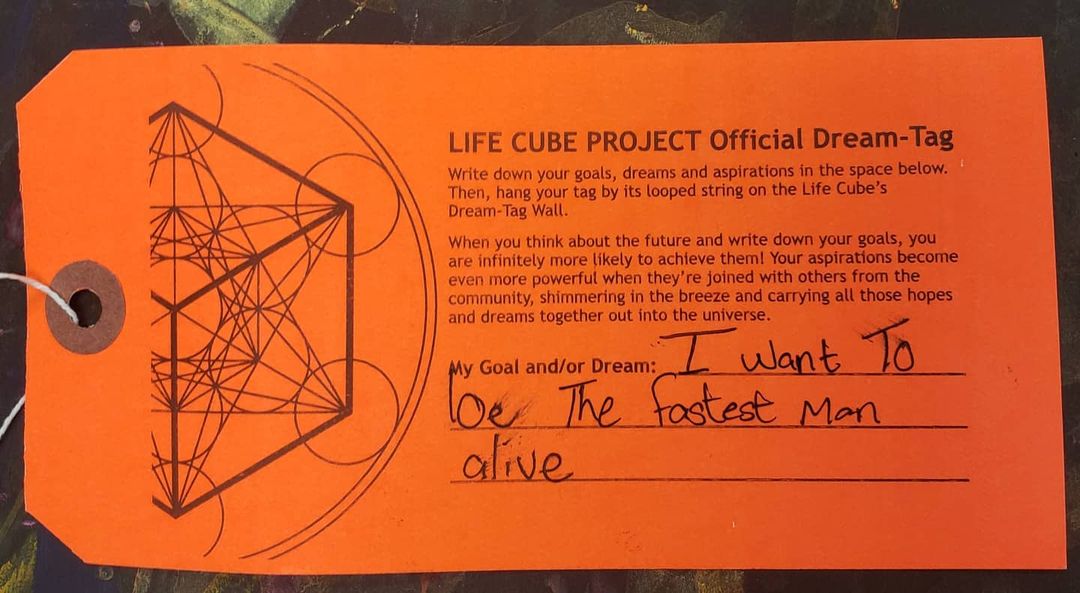 LIFE CUBE PROJECT Official Dream-Tag
Write down your goals, dreams and aspirations in the space below.
Then, hang your tag by its looped string on the Life Cube's
Dream-Tag Wall.
When you think about the future and write down your goals, you
are infinitely more likely to achieve them! Your aspirations become
even more powerful when they're joined with others from the
community, shimmering in the breeze and carrying all those hopes
and dreams together out into the universe.
My Goal and/or Dream: I want To
be The fastest Man
alive